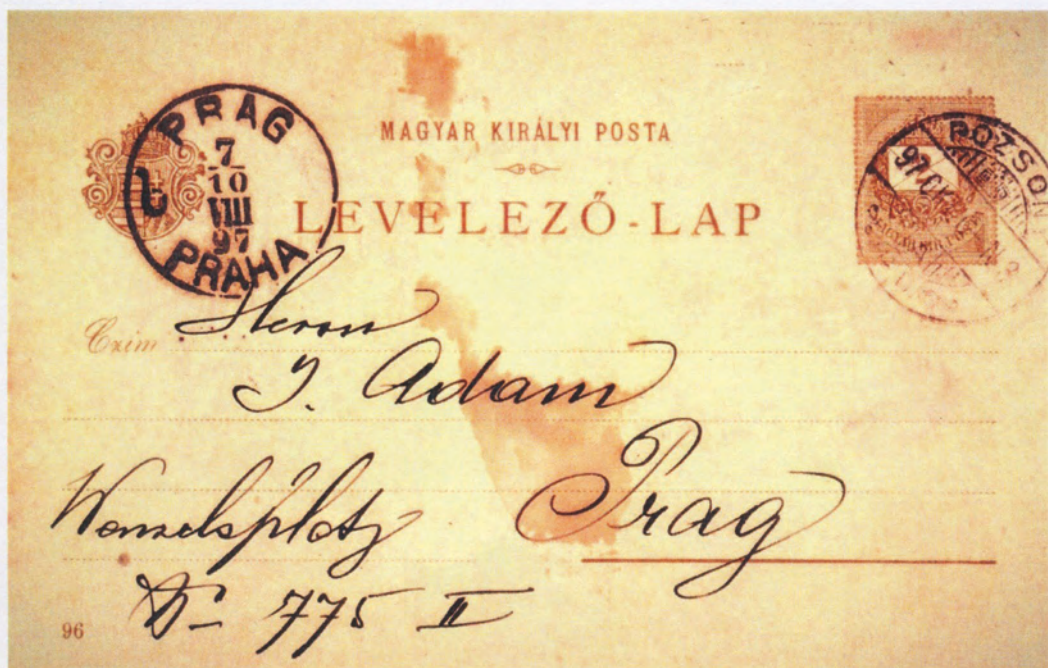 PRAG
7
10
VIII
97
PRAHA
MAGYAR KIRÁLYI POSTA
LEVELEZŐ-LAP
POZSON
97
Czim
Herrn
J. Adam
Prag
Wenzelsplatz
No 775 II
96